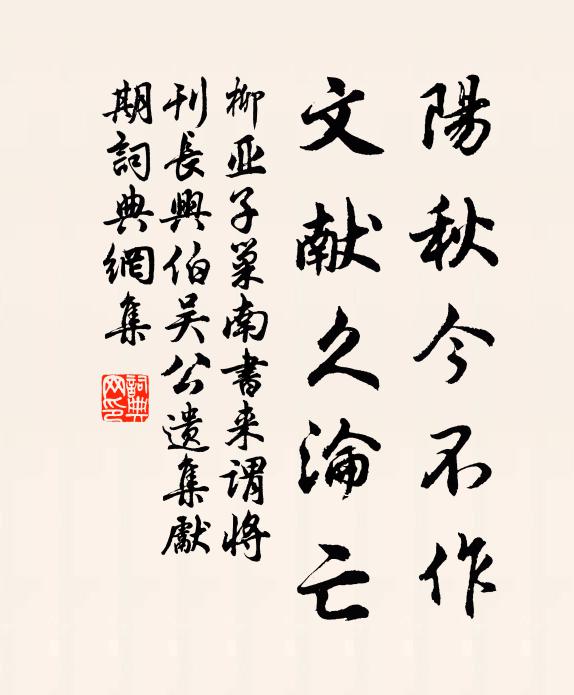 陽秋今不作
文献久淪亡
柳亚子巢南書来謂将
刊長興伯吴公遗集獻
期詞典網集
詞典网印